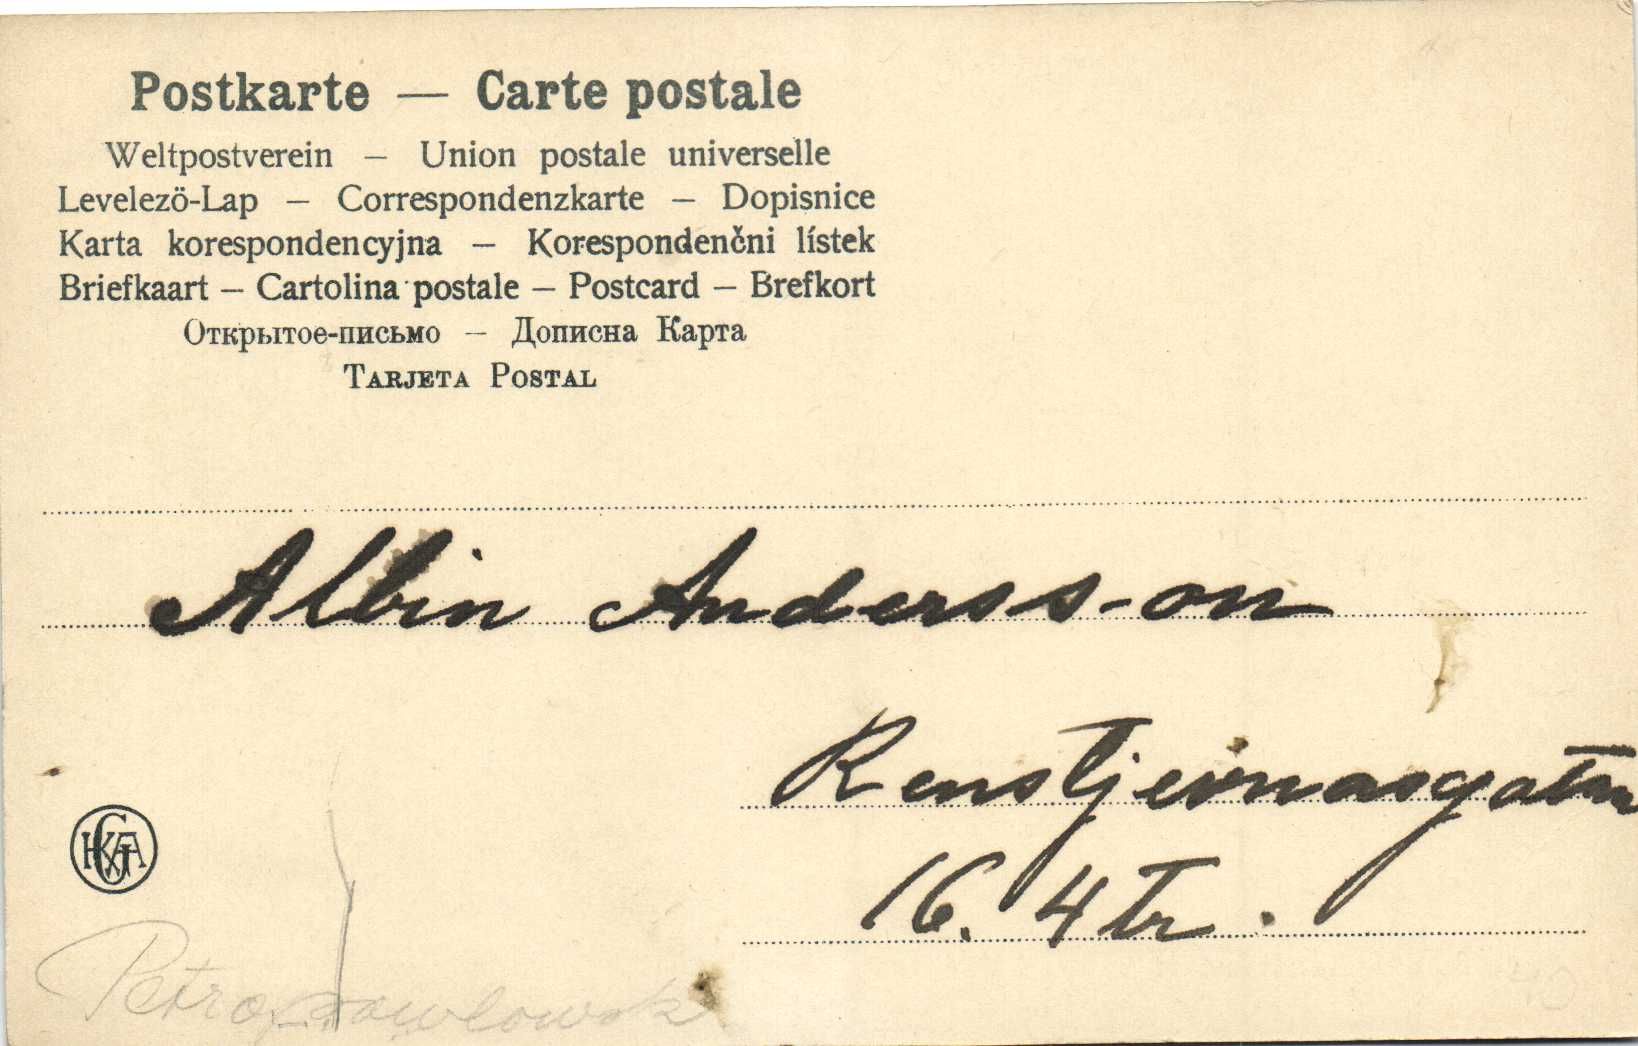 Postkarte — Carte postale
Weltpostverein – Union postale universelle
Levelezö-Lap – Correspondenzkarte – Dopisnice
Karta korespondencyjna – Korespondenčni lístek
Briefkaart – Cartolina postale – Postcard – Brefkort
Открытое-письмо – Дописна Карта
TARJETA POSTAL
Albin Anderss-on
Renstjernasgatan
16. 4 tr.
Petropawlowsk